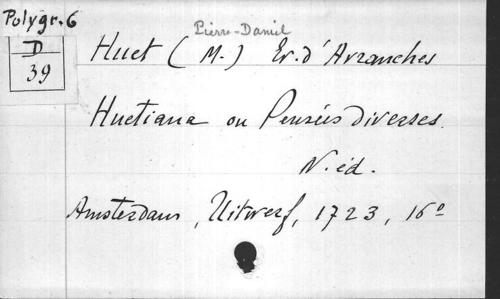 Polygr. G
D
39
Pierre-Daniel
Huet (M.) Ev. d'Avranches
Huetiana ou Pensées diverses.
N. éd.
Amsterdam, Uitwerf, 1723, 16º